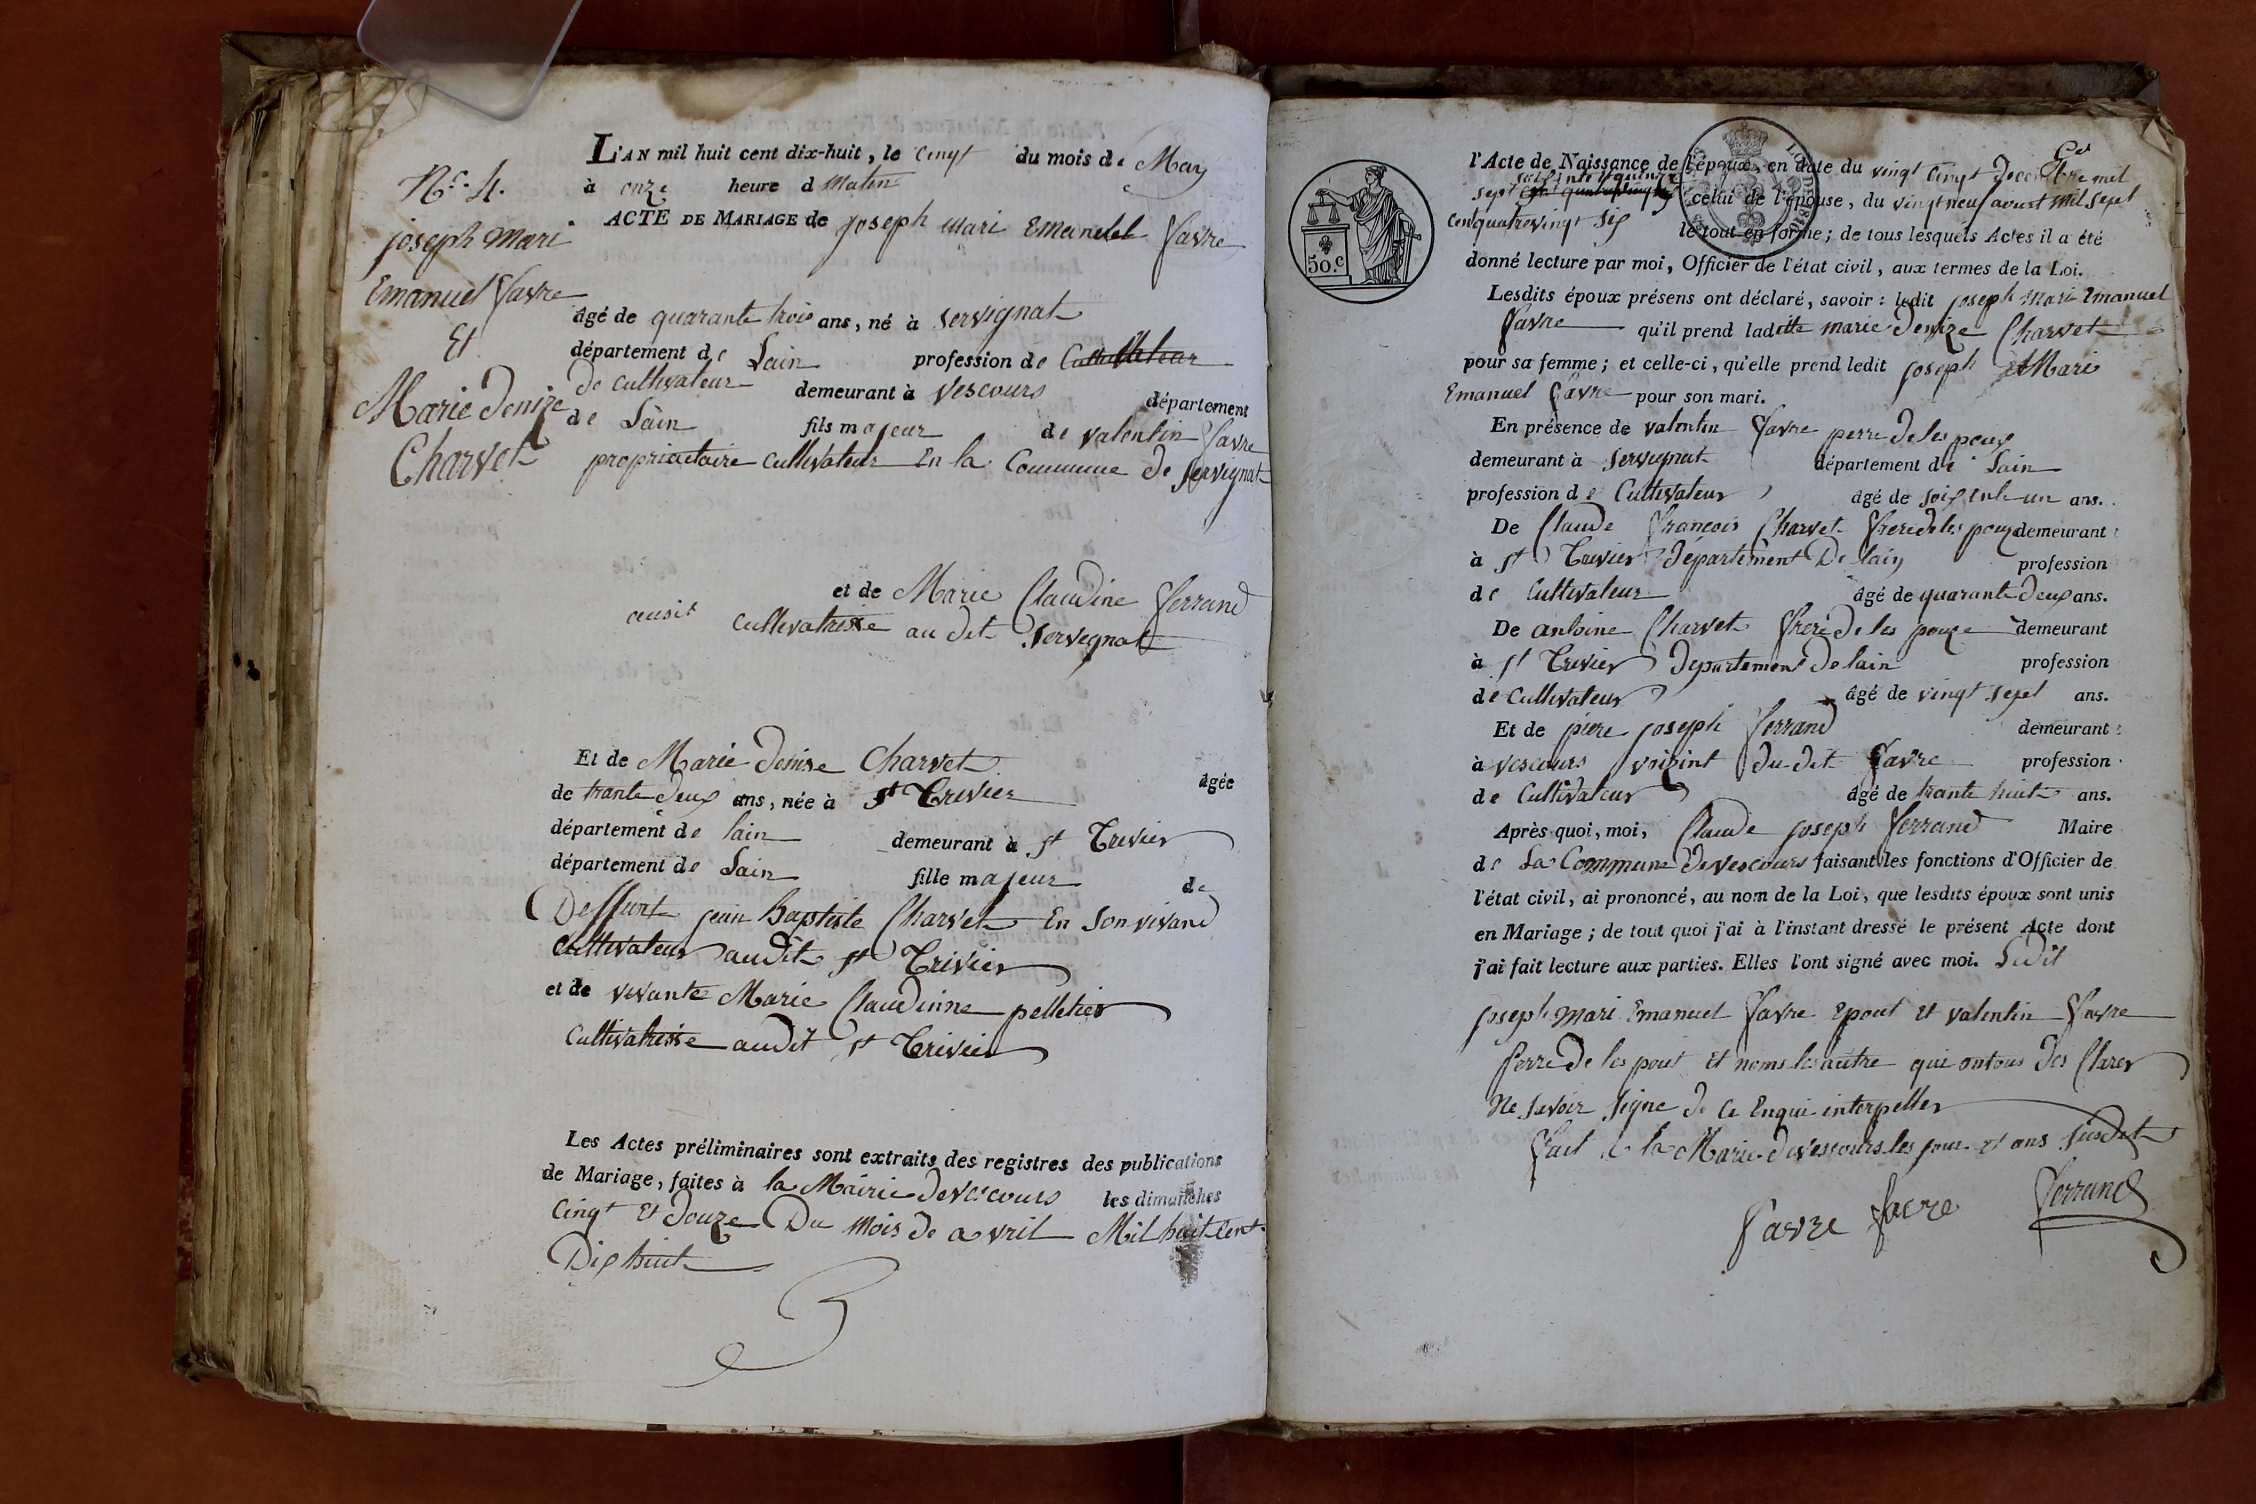 L'AN mil huit cent dix-huit, le cinqt du mois de May
N.° 4. à onze heure d Matin
ACTE DE MARIAGE de joseph mari Emanuel favre
joseph Mari
Emanuel favre
Et
Marie denize
Charvet
âgé de quarante trois ans, né à servignat
département de Lain profession de Cultivateur
de cultivateur demeurant à vescours département
de Lain fils majeur de valentin favre
propriautaire cultivateur En la Commune de servignat
et de Marie Claudine ferrand
ausit cultivatrisse au dit servegnat
Et de Marie denise Charvet agée
de trante deux ans, née à st Trivier
département de lain demeurant à st Trivier
département de Lain fille majeur de
Deffunt jean baptiste Charvet En son vivand
cultivateur audit st Trivier
et de vivante Marie Claudinne pelletier
Cultivatrisse audit st Trivier
Les Actes préliminaires sont extraits des registres des publications
de Mariage, faites à la Mairie de vescours les dimanches
Cinqt Et douze Du mois de avril Mil huit Cent
Dix huit
50.c
l'Acte de Naissance de l'époux, en date du vingt cinqt decembre mil
sept soisante et quinze celui de l'épouse, du vingt neuf aoust mil sept
cent quatre vingt six le tout en forme; de tous lesquels Actes il a été
donné lecture par moi, Officier de l'état civil, aux termes de la Loi.
Lesdits époux présens ont déclaré, savoir : ledit joseph Mari Emanuel
favre qu'il prend laditte marie denize Charvet
pour sa femme; et celle-ci, qu'elle prend ledit joseph Mari
Emanuel favre pour son mari.
En présence de valentin favre perre de les poux
demeurant à servignat département de Lain
profession de Cultivateur âgé de soixente un ans.
De Claude francois Charvet frere de les pouze demeurant
à st Trivier département De lain profession
de Cultivateur âgé de quarante deux ans.
De antoine Charvet frere de les pouze demeurant
à st Trivier departement de lain profession
de Cultivateur âgé de vingt sept ans.
Et de piere joseph ferrand demeurant
à vescours voisint du dit favre profession
de Cultivateur âgé de trante huit ans.
Après quoi, moi, Claude joseph ferrand Maire
de La Commune de vescours faisant les fonctions d'Officier de
l'état civil, ai prononcé, au nom de la Loi, que lesdits époux sont unis
en Mariage; de tout quoi j'ai à l'instant dressé le présent Acte dont
j'ai fait lecture aux parties. Elles l'ont signé avec moi. Ledit
joseph mari Emanuel favre Epout Et valentin favre
perre de les pout Et noms les autre qui ontous des Clarer
Ne savoir signe de ce Enqui interpeller
fait à la Marie de vescours les jour et ans susdit
favre favre ferrand